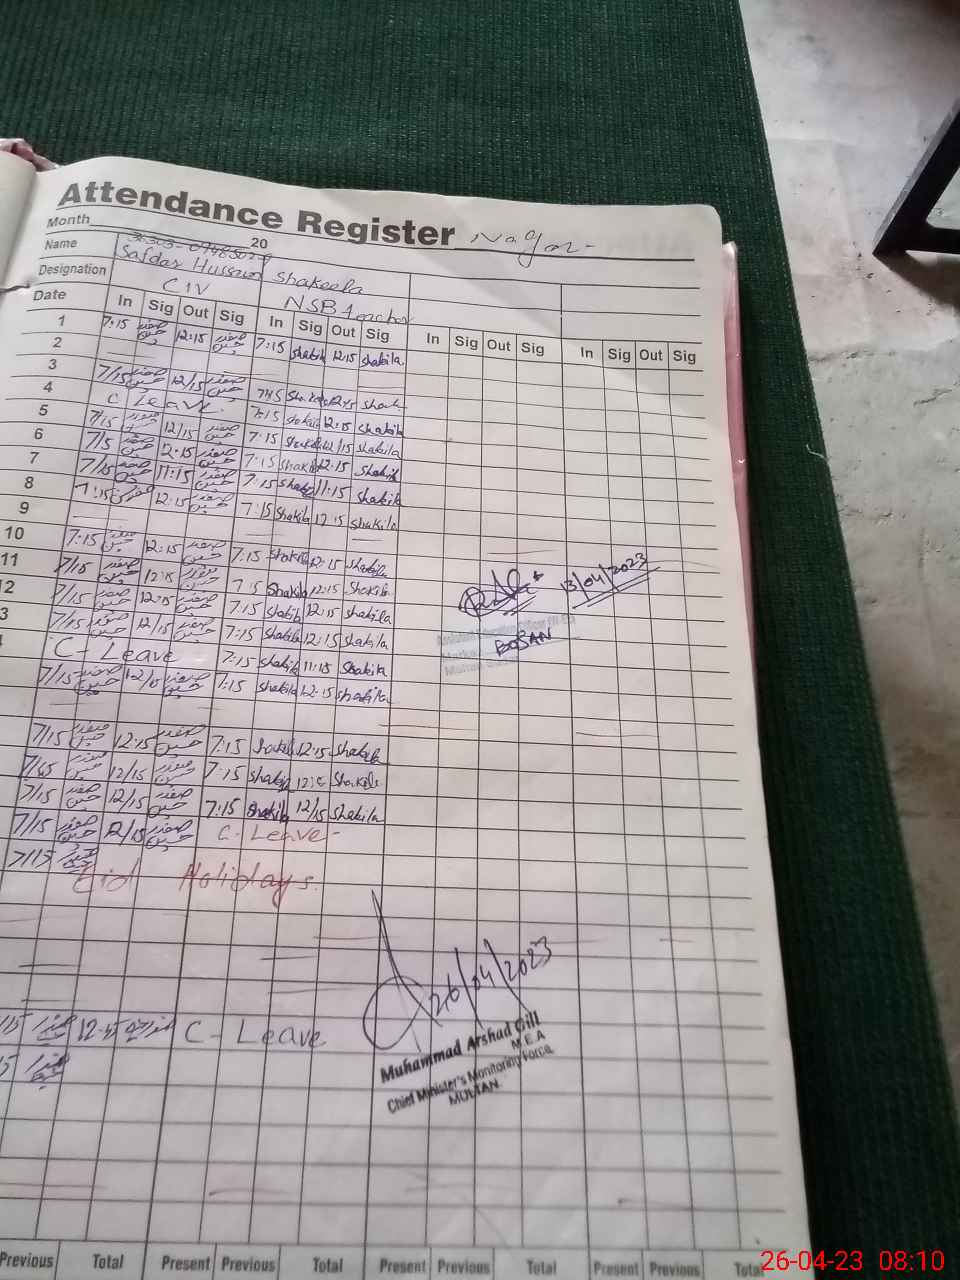 Attendance Register Nagar-
Month 20
Name Safdar Hussain Shakeela
Designation C IV NSB Teacher
Date In Sig Out Sig In Sig Out Sig In Sig Out Sig In Sig Out Sig
1 7:15 صفدر حسین 12:15 صفدر حسین 7:15 shakila 12:15 shakila
2
3 7/15 صفدر حسین 12/15 صفدر حسین
4 C Leave. 7:15 12:15 shakila
5 7/15 12/15 صفدر حسین 7:15 12/15 shakila
6 7/15 صفدر حسین 12:15 صفدر حسین 7:15 shakila 12:15 shakila
7 7/15 11:15 صفدر حسین 7:15 11:15 shakila
8 7:15 12:15 صفدر حسین 7:15 shakila 12:15 shakila
9
10 7:15 12:15 صفدر حسین 7:15 shakila 12:15 shakila
11 7/15 صفدر حسین 12:15 صفدر حسین 7:15 Shakila 12:15 Shakila
12 7/15 صفدر حسین 12:15 صفدر حسین 7:15 shakila 12:15 shakila
3 7/15 صفدر حسین 12/15 صفدر حسین 7:15 shakila 12:15 shakila
C- Leave 7:15 shakila 11:15 Shakila
7/15 صفدر حسین 12/15 صفدر حسین 7:15 shakila 12:15 shakila
7/15 صفدر حسین 12:15 صفدر حسین 7:15 shakila 12:15 Shakila
7/15 صفدر حسین 12/15 صفدر حسین 7:15 shakila
7/15 صفدر حسین 12/15 صفدر حسین 7:15 Shakila 12/15 Shakila
7/15 صفدر حسین 12/15 صفدر حسین C- Leave-
7/15
Eid Holidays.
C- Leave
13/04/2023
BOSAN
26/04/2023
Muhammad Arshad Gill
M.E.A
Chief Minister's Monitoring Force
MULTAN
Previous Total Present Previous Total Present Previous Total Present Previous Total
26-04-23 08:10